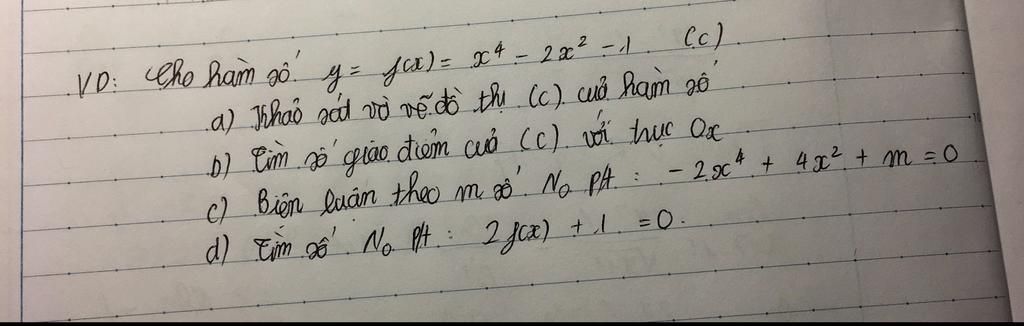 VD: Cho hàm số y = f(x) = x⁴ - 2x² - 1 (C)
a) Khảo sát và vẽ đồ thị (C) của hàm số
b) Tìm số giao điểm của (C) với trục Ox
c) Biện luận theo m số No pt : - 2x⁴ + 4x² + m = 0
d) Tìm số No pt : 2f(x) + 1 = 0.